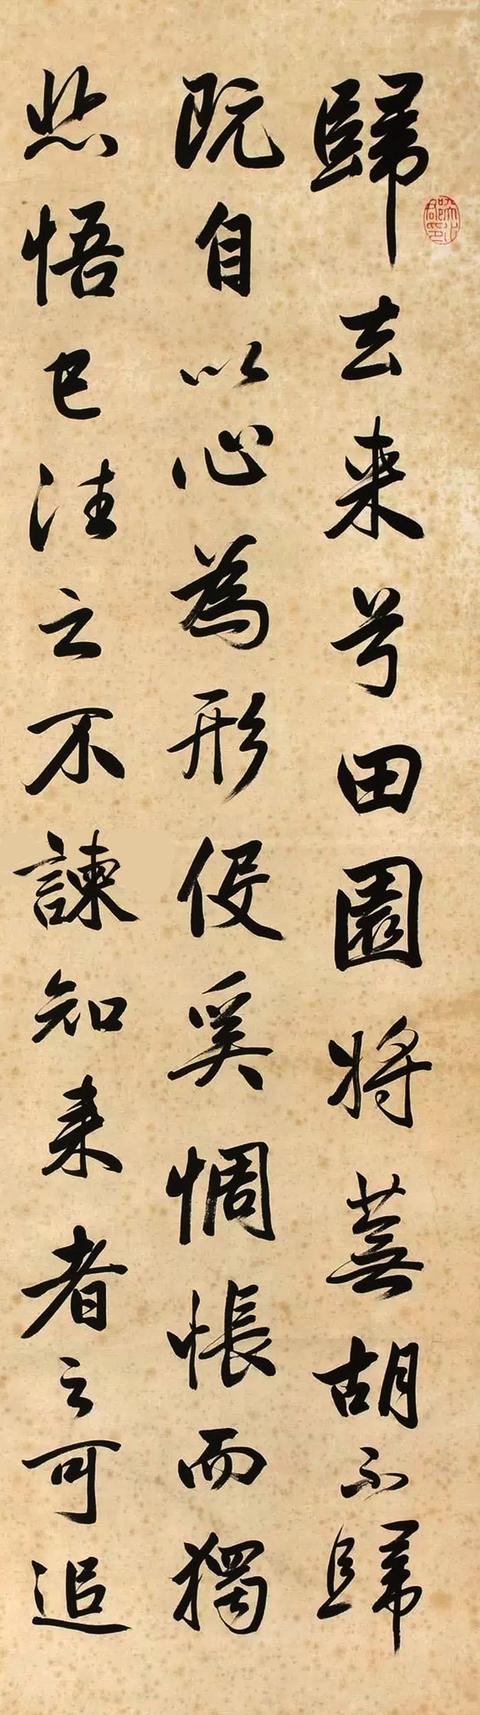 歸去来兮田園将蕪胡不歸
既自以心為形伇奚惆悵而獨
悲悟已往之不諫知来者之可追